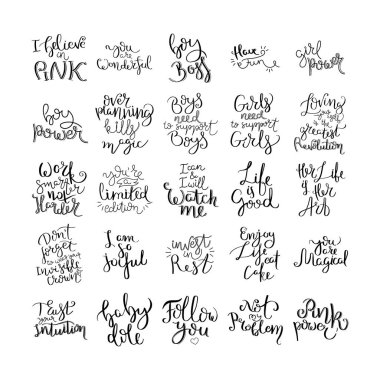 I believe
in
PINK
you
are
Wonderful
boy
Boss
Have
a
fun
girl
power
boy
power
over
planning
kills
magic
Boys
need
to support
Boys
Girls
need
to support
Girls
Loving
yourself
is the
Greatest
Revolution
Work
smart
not
Harder
you're
limited
edition
I can
& I will
Watch
me
Life
is
Good
Her Life
is Her
Art
Don't
forget
your
Invisible
Crown
I am
so
Joyful
invest
in
Rest
Enjoy
Life
eat
Cake
you
are
Magical
Trust
your
Intuition
baby
dole
Follow
you
Not
my
Problem
Pink
power